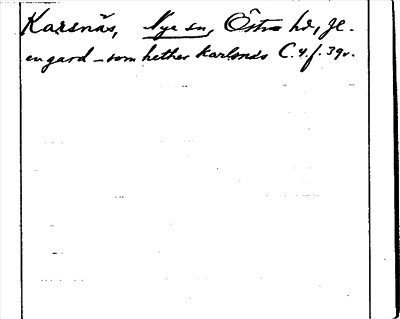 Karsnäs, Nye sn, Östra hd, Je.
en gard – som hether Karlsnäs C.4.f.39v.